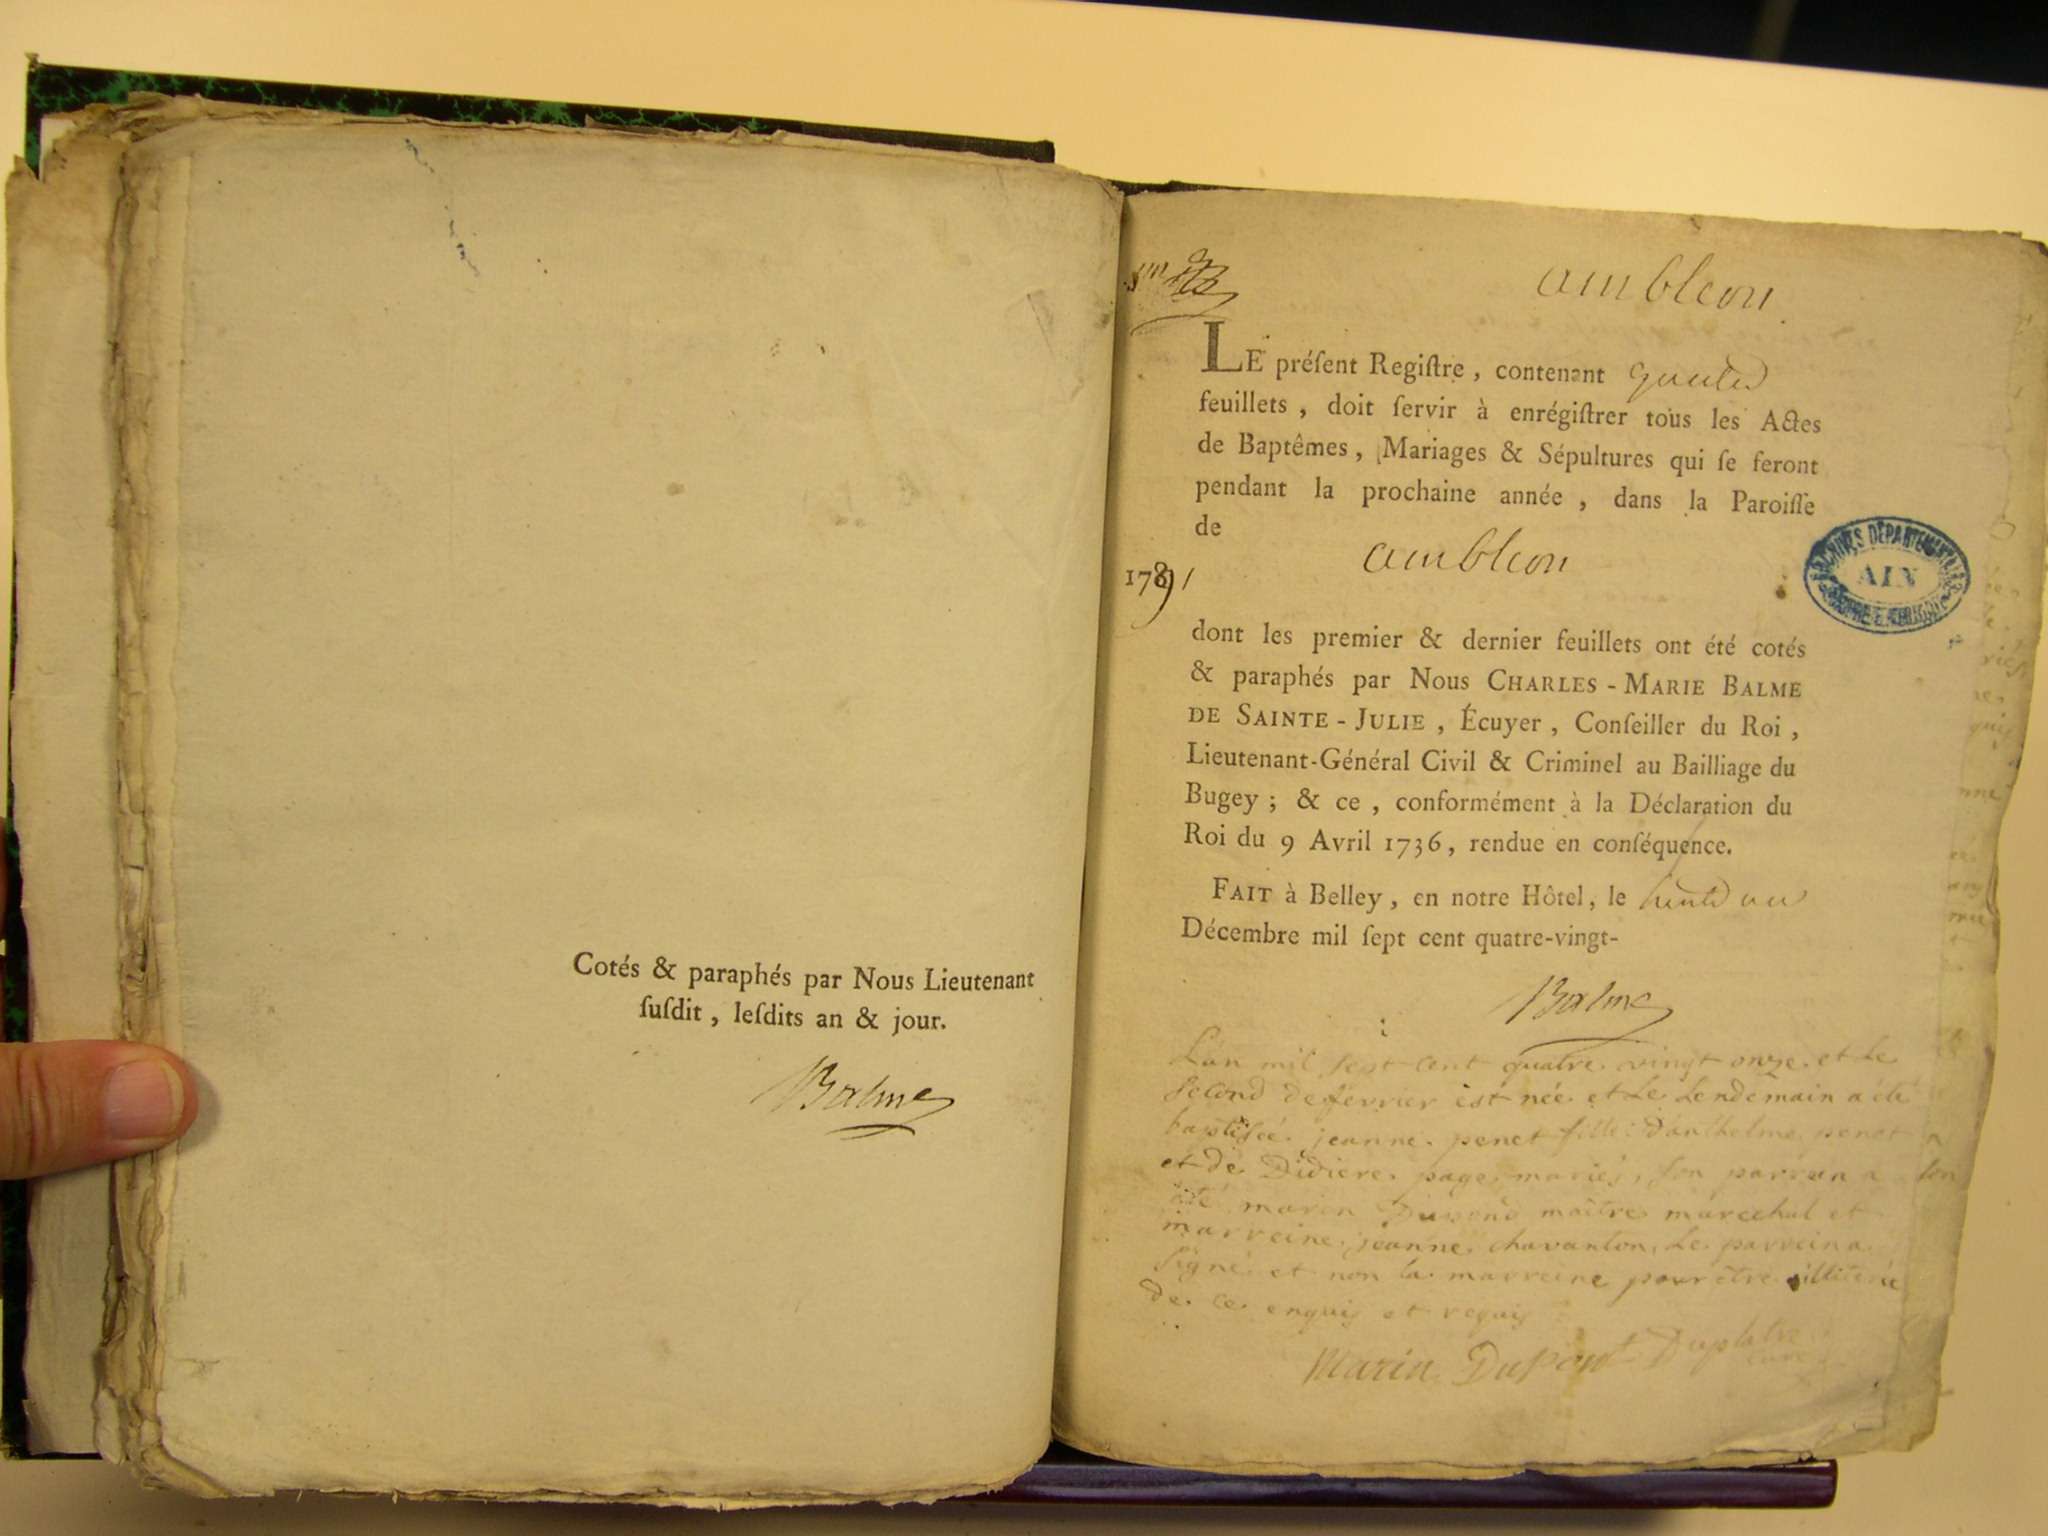 Cotés & paraphés par Nous Lieutenant
ſuſdit, leſdits an & jour.
Balme
ambleon
LE préſent Regiſtre, contenant
feuillets, doit ſervir à enrégiſtrer tous les Actes
de Baptêmes, Mariages & Sépultures qui ſe feront
pendant la prochaine année, dans la Paroiſſe
de
ambleon
1791
ARCHIVES DÉPARTEMENTALES
AIN
dont les premier & dernier feuillets ont été cotés
& paraphés par Nous CHARLES-MARIE BALME
DE SAINTE-JULIE, Écuyer, Conſeiller du Roi,
Lieutenant-Général Civil & Criminel au Bailliage du
Bugey; & ce, conformément à la Déclaration du
Roi du 9 Avril 1736, rendue en conſéquence.
FAIT à Belley, en notre Hôtel, le
Décembre mil ſept cent quatre-vingt-
Balme
L'an mil sept cent quatre vingt onze et le
second de fevrier est née et le lendemain a été
baptisée jeanne penet fille d'anthelme penet
et de Didiere page mariés, son parrein a
été marin Dupond maitre marechal et
marreine jeanne chavanton, le parrein a
signé et non la marreine pour etre illiterée
de ce enquis et requis
Marin Dupont Duplatre
curé